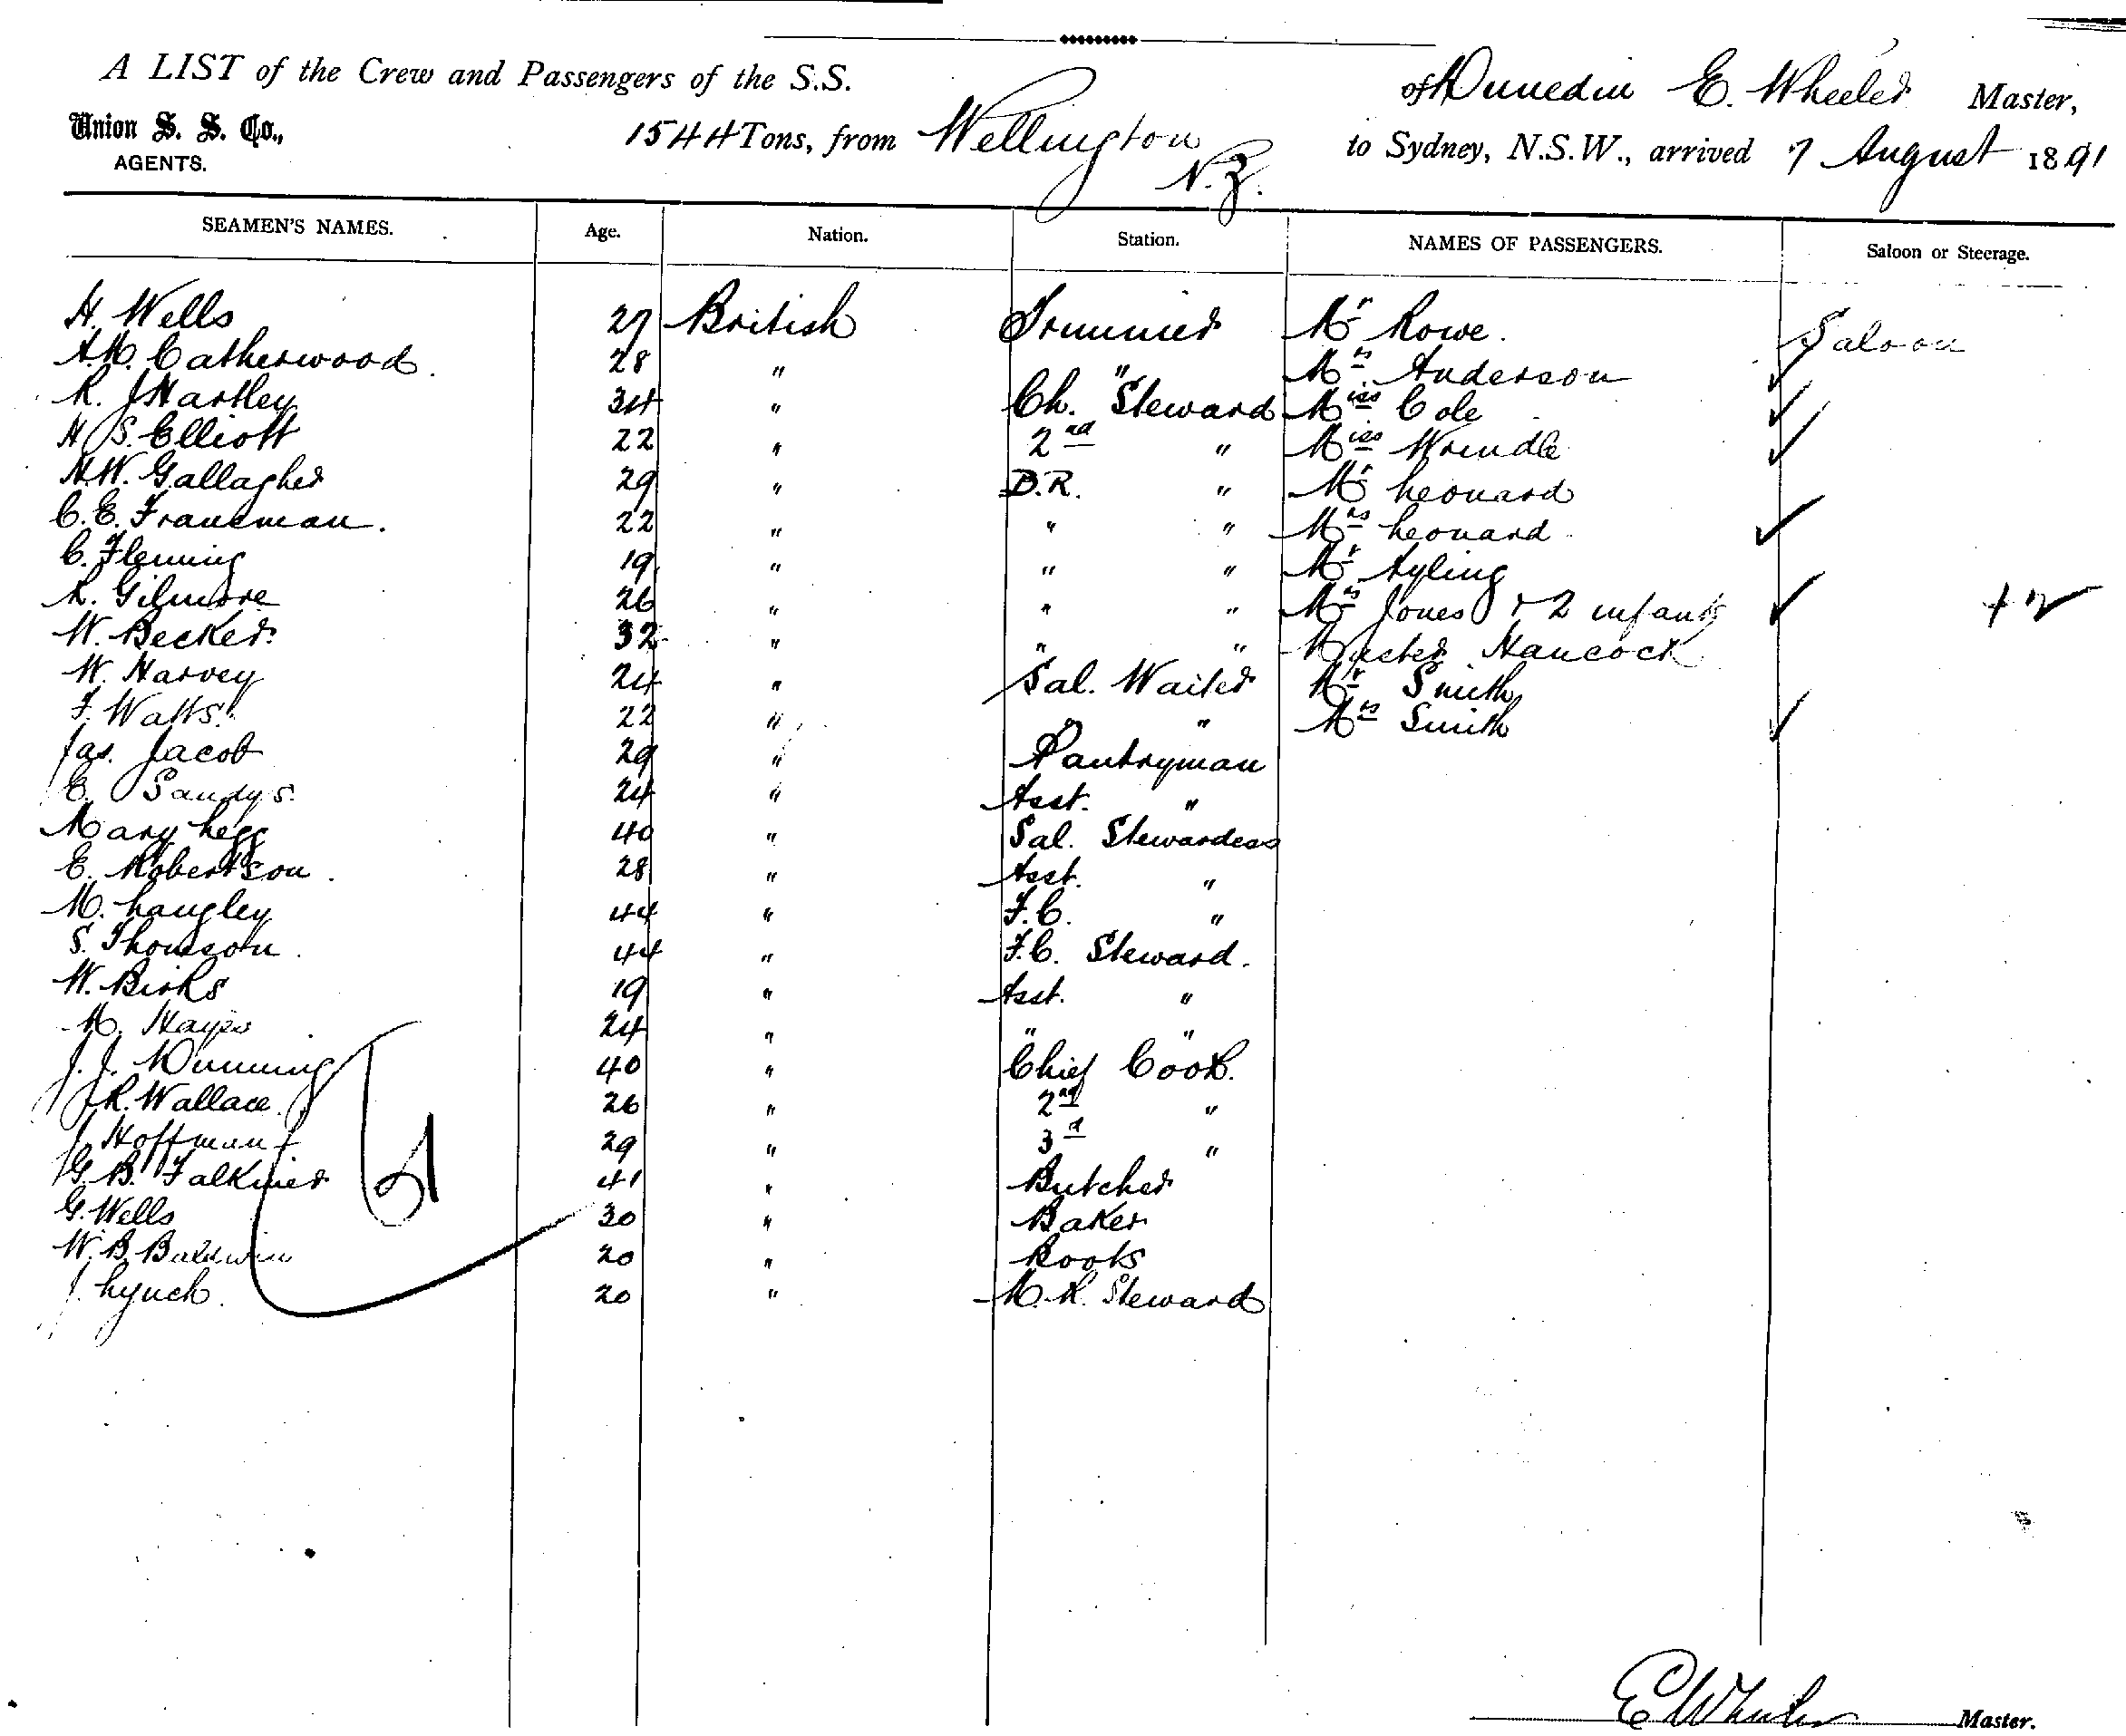 A LIST of the Crew and Passengers of the S.S. of Dunedin E. Wheeler Master,
Union S. S. Co., AGENTS. 1544 Tons, from Wellington N.Z. to Sydney, N.S.W., arrived 7 August 1891
SEAMEN'S NAMES. Age. Nation. Station. NAMES OF PASSENGERS. Saloon or Steerage.
H. Wells 27 British Trimmer Mr Rowe. Saloon
A.M. Catherwood. 28 " " Mrs. Anderson
R. J Hartley 34 " Ch. Steward Miss Cole
H S. Elliott 22 " 2nd " Miss Wrindle
H.W. Gallagher 29 " B.R. " Mr Leonard
C. E. Franeman. 22 " " " Mrs Leonard
C. Fleming 19 " " " Mr Ayling
R. Gilmore 26 " " " Mrs Jones & 2 infants + 2
W. Becker. 32 " " " Master Hancock
W. Harvey 24 " Sal. Waiter Mr Smith
F. Watts. 22 " " Mrs Smith
Jas. Jacob 29 " Pantryman
E. Sandys. 24 " Asst. "
Mary Legg 40 " Sal. Stewardess
E. Robertson. 28 " Asst. "
M. Langley 44 " F.C. "
S. Thomson. 44 " F.C. Steward.
W. Birks 19 " Asst. "
M. Hayes 24 " " "
J. J. Dunning 40 " Chief Cook.
J R. Wallace. 26 " 2nd "
J Hoffman 29 " 3d "
G. B. Falkiner 41 " Butcher
G. Wells 30 " Baker
W. B. Baldwin 20 " Cooks
J. Lynch. 20 " M. R. Steward
E Wheeler Master.